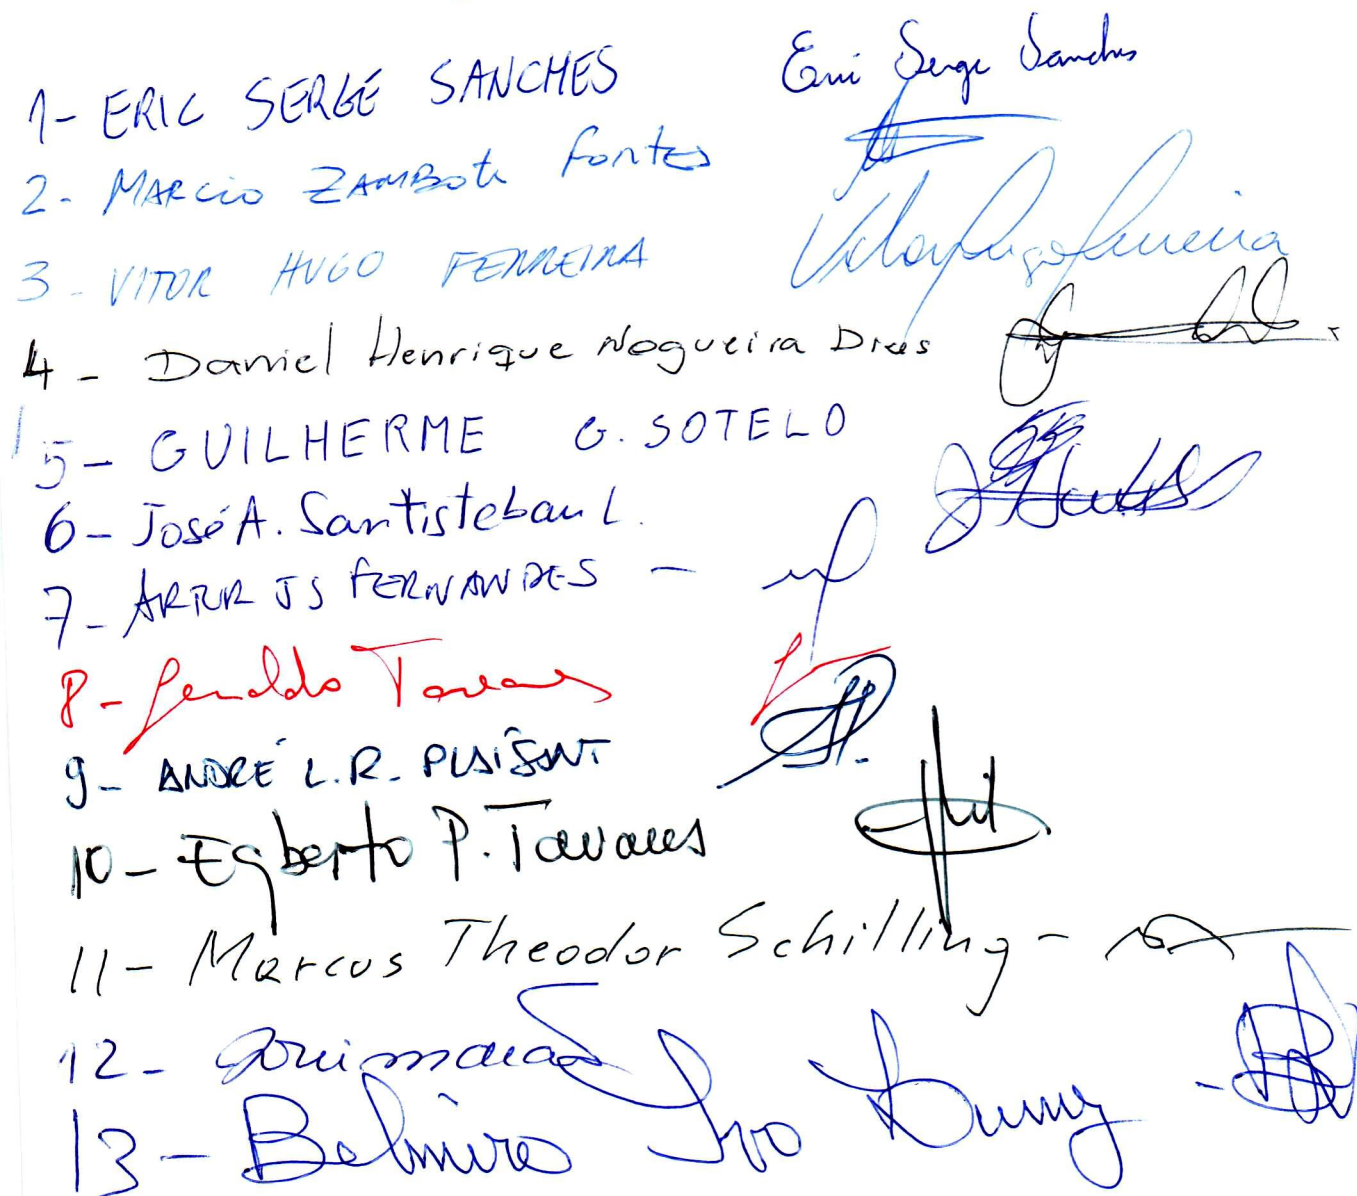 1- ERIC SERGE SANCHES Eric Serge Sanches
2- MARCIO ZAMBOTI fontes
3- VITOR HUGO FERREIRA Vitor Hugo Ferreira
4- Daniel Henrique Nogueira Dias
5- GUILHERME G. SOTELO
6- José A. Santisteban L.
7- ARTUR JS FERNANDES -
8- Geraldo Tavares
9- ANDRÉ L.R. PLAISANT
10- Egberto P. Tavares
11- Marcus Theodor Schilling -
12-
13- Belmiro Ivo -